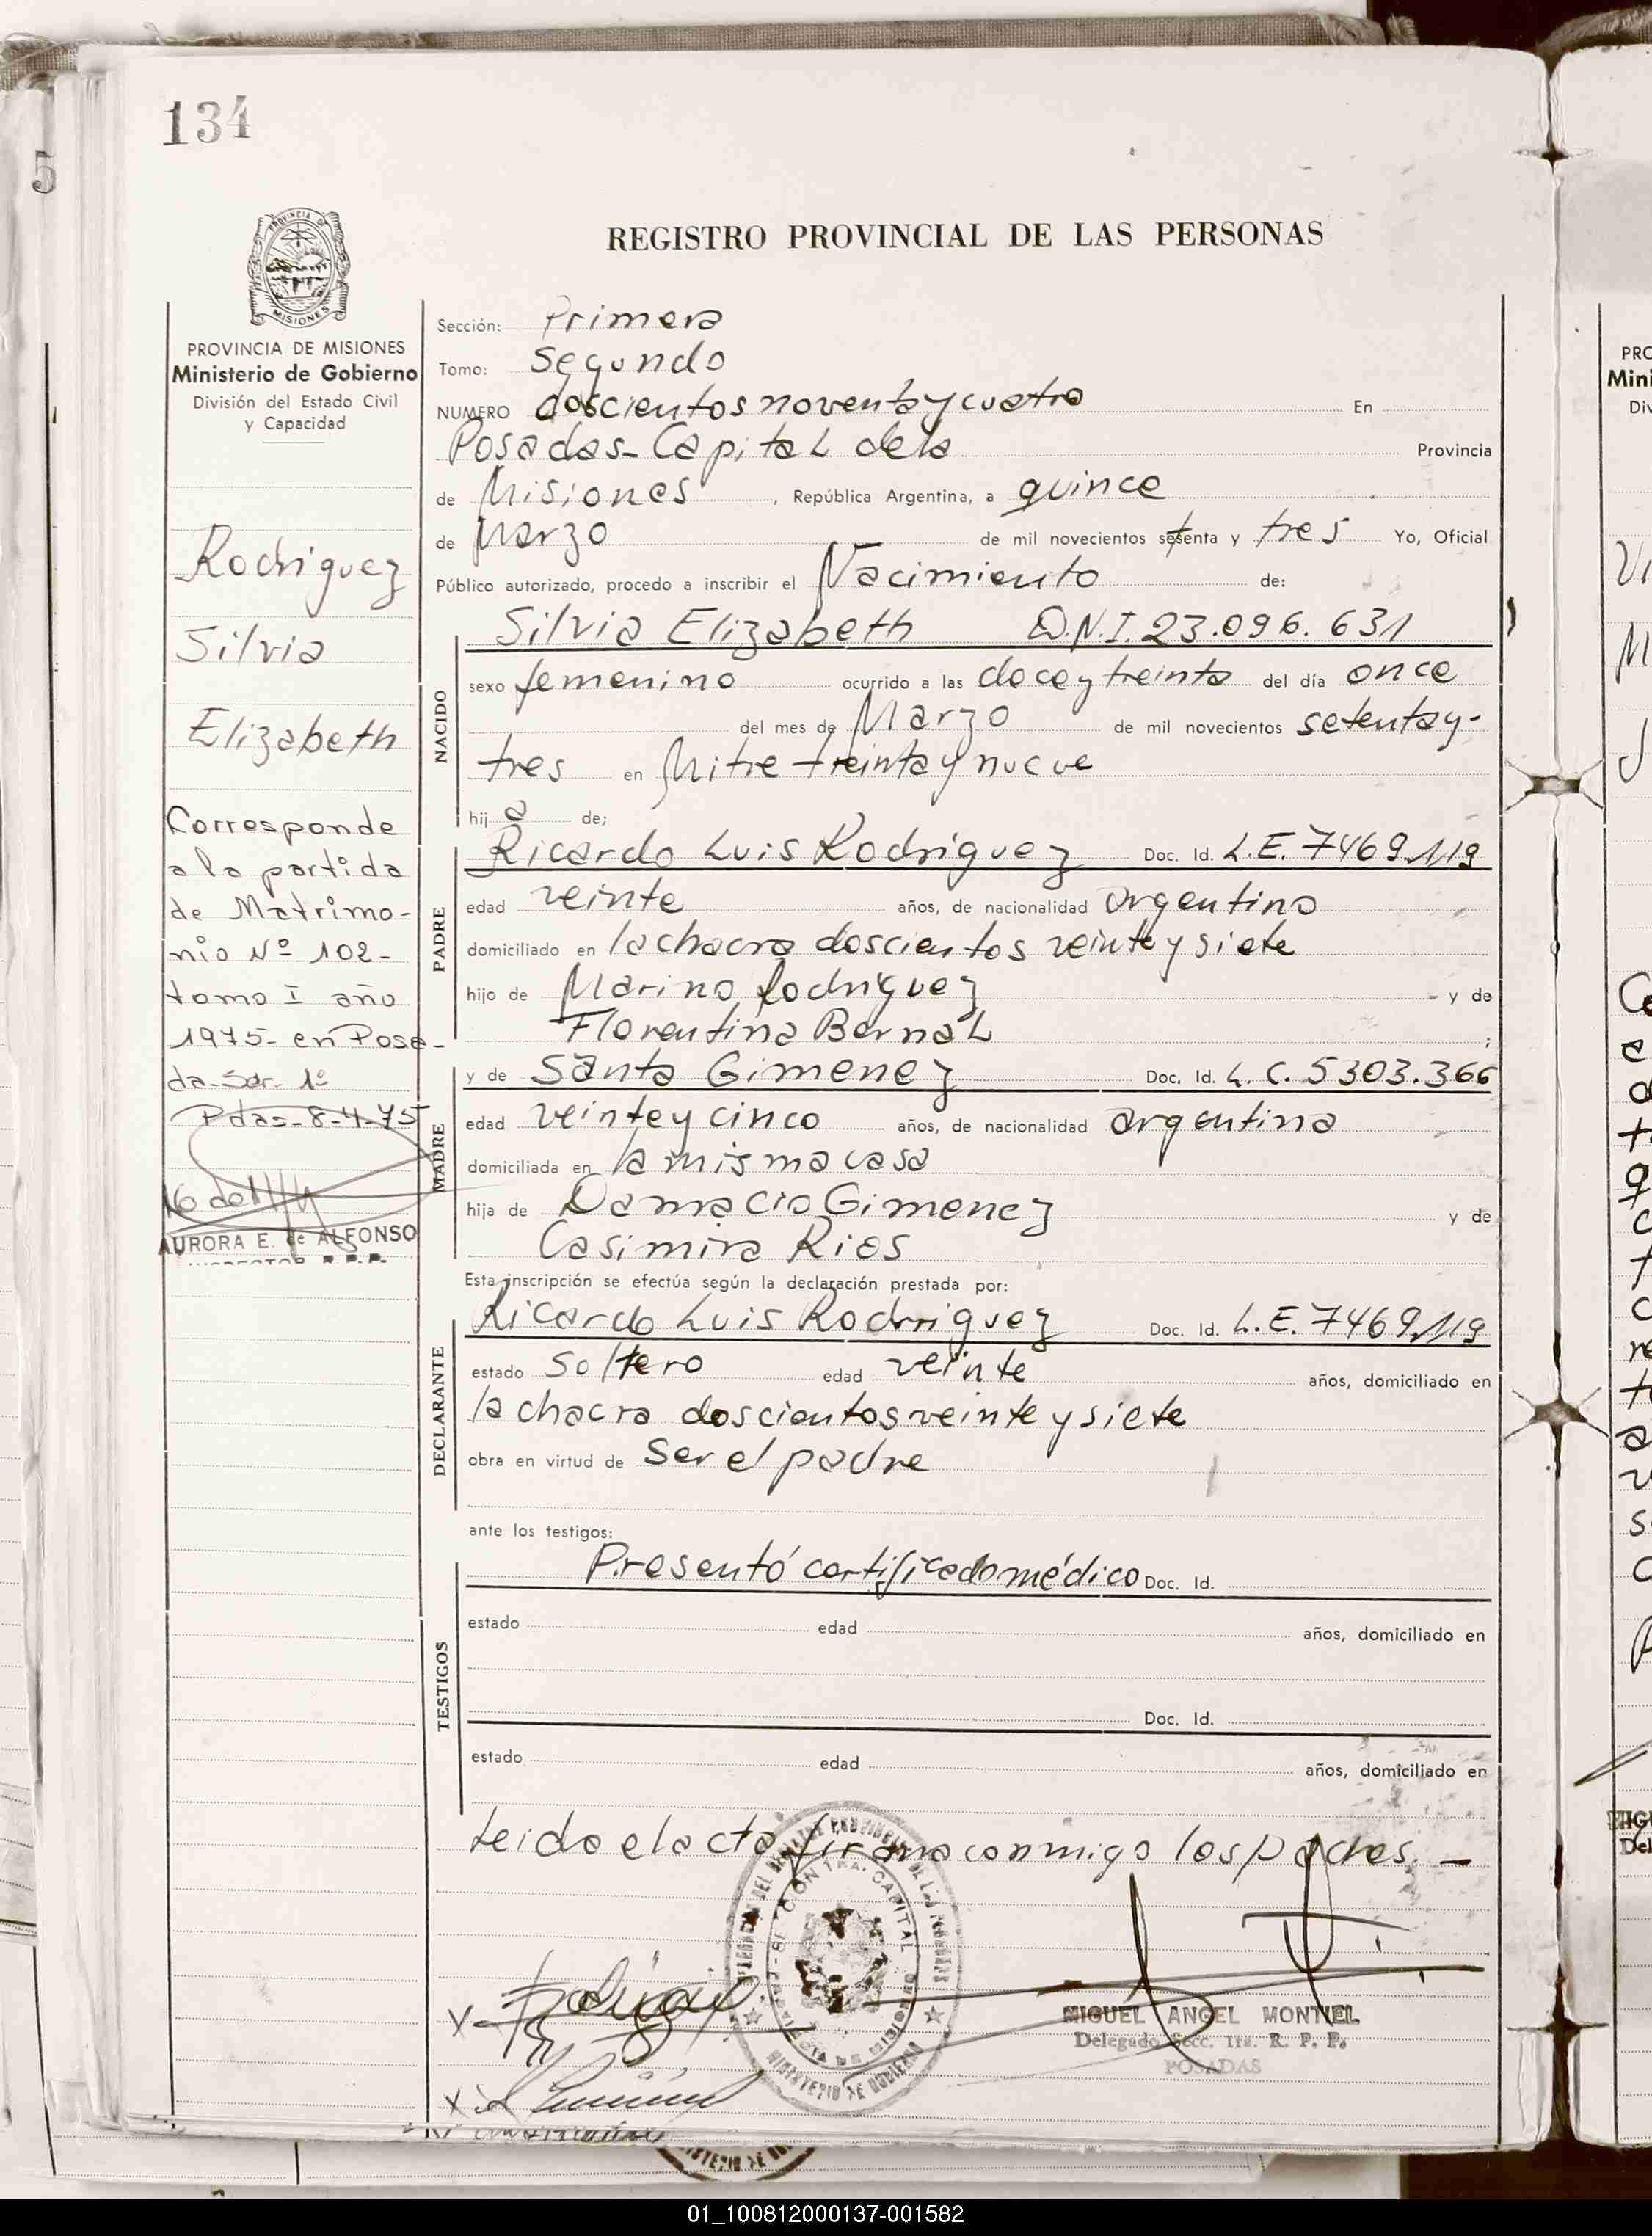 134
5
REGISTRO PROVINCIAL DE LAS PERSONAS
PROVINCIA DE MISIONES
Ministerio de Gobierno
División del Estado Civil
y Capacidad
Rodriguez
Silvia
Elizabeth
Corresponde
a la partida
de Matrimo-
nio Nº 102-
tomo I año
1975- en Posa-
da-Scr. 1º
Pdas-8-4-75
AURORA E. de ALFONSO
INSPECTOR R.P.P.
Sección: Primera
Tomo: Segundo
NUMERO doscientos noventa y cuatro En
Posadas-Capital de la Provincia
de Misiones, República Argentina, a quince
de Marzo de mil novecientos setenta y tres Yo, Oficial
Público autorizado, procedo a inscribir el Nacimiento de:
NACIDO
Silvia Elizabeth D.N.I. 23.096.631
sexo femenino ocurrido a las doce y treinta del día once
del mes de Marzo de mil novecientos setenta y-
tres en Mitre treinta y nueve
hija de;
PADRE
Ricardo Luis Rodriguez Doc. Id. L.E. 7469.119
edad veinte años, de nacionalidad argentino
domiciliado en la chacra doscientos veinte y siete
hijo de Marino Rodriguez y de
Florentina Bernal ;
MADRE
y de Santa Gimenez Doc. Id. L.C. 5303.366
edad veinte y cinco años, de nacionalidad argentina
domiciliada en la misma casa
hija de Damacio Gimenez y de
Casimira Rios
Esta inscripción se efectúa según la declaración prestada por:
DECLARANTE
Ricardo Luis Rodriguez Doc. Id. L.E. 7469.119
estado soltero edad veinte años, domiciliado en
la chacra doscientos veinte y siete
obra en virtud de ser el padre
ante los testigos:
TESTIGOS
Presentó certificado médico Doc. Id.
estado edad años, domiciliado en
Doc. Id.
estado edad años, domiciliado en
Leida el acta firma conmigo los padres.-
MIGUEL ANGEL MONTIEL
Delegado Secc. 1ra. R. P. P.
POSADAS
01_100812000137-001582